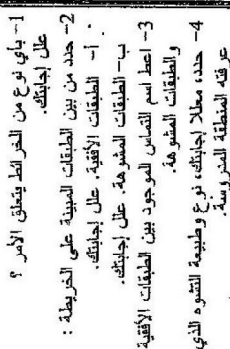 1- بأي نوع من الخرائط يتعلق الأمر ؟
علل إجابتك.
2- حدد من بين الطبقات المبينة على الخريطة :
أ- الطبقات الأفقية. علل إجابتك.
ب- الطبقات المشوهة. علل إجابتك.
3- اعط اسم التماس الموجود بين الطبقات الأفقية
والطبقات المشوهة.
4- حدد، معللا إجابتك، نوع وطبيعة التشوه الذي
عرفته المنطقة المدروسة.